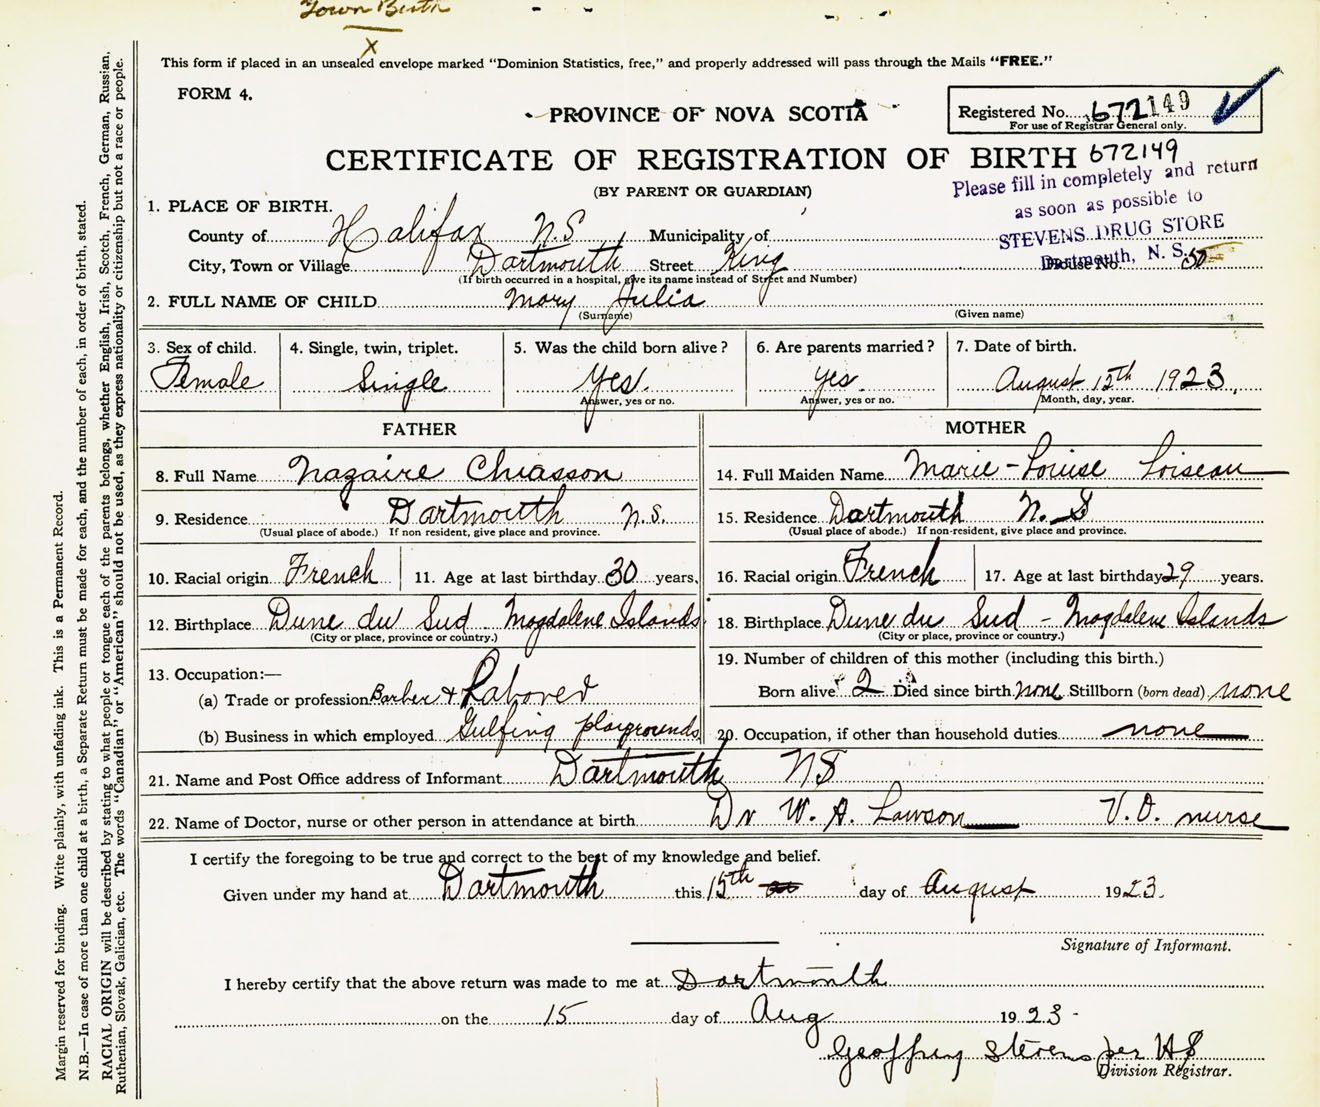 Town Birth
X
This form if placed in an unsealed envelope marked "Dominion Statistics, free," and properly addressed will pass through the Mails "FREE."
FORM 4.
PROVINCE OF NOVA SCOTIA
Registered No. 672149
For use of Registrar General only.
CERTIFICATE OF REGISTRATION OF BIRTH 672149
(BY PARENT OR GUARDIAN)
Please fill in completely and return
as soon as possible to
STEVENS DRUG STORE
Dartmouth, N. S.
1. PLACE OF BIRTH.
County of Halifax N.S Municipality of
City, Town or Village Dartmouth Street King House No. 50
(If birth occurred in a hospital, give its name instead of Street and Number)
2. FULL NAME OF CHILD Mary Julia
(Surname) (Given name)
3. Sex of child. 4. Single, twin, triplet. 5. Was the child born alive? 6. Are parents married? 7. Date of birth.
Female Single Yes. Yes. August 15th 1923.
Answer, yes or no. Answer, yes or no. Month, day, year.
FATHER MOTHER
8. Full Name Nazaire Chiasson 14. Full Maiden Name Marie-Louise Loiseau
9. Residence Dartmouth N.S. 15. Residence Dartmouth N.S
(Usual place of abode.) If non resident, give place and province. (Usual place of abode.) If non-resident, give place and province.
10. Racial origin French 11. Age at last birthday 30 years. 16. Racial origin French 17. Age at last birthday 29 years.
12. Birthplace Dune du Sud Magdalene Islands 18. Birthplace Dune du Sud - Magdalene Islands
(City or place, province or country.) (City or place, province or country.)
13. Occupation:— 19. Number of children of this mother (including this birth.)
(a) Trade or profession Barber & Labored Born alive 2 Died since birth none Stillborn (born dead) none
(b) Business in which employed Gulfing playgrounds 20. Occupation, if other than household duties none
21. Name and Post Office address of Informant Dartmouth NS
22. Name of Doctor, nurse or other person in attendance at birth Dr W. A. Lawson V.O. nurse
I certify the foregoing to be true and correct to the best of my knowledge and belief.
Given under my hand at Dartmouth this 15th day of August 1923.
Signature of Informant.
I hereby certify that the above return was made to me at Dartmouth
on the 15 day of Aug 1923-
Geoffrey Stevens per HS
Division Registrar.
Margin reserved for binding. Write plainly, with unfading ink. This is a Permanent Record.
N.B.—In case of more than one child at a birth, a Separate Return must be made for each, and the number of each, in order of birth, stated.
RACIAL ORIGIN will be described by stating to what people or tongue each of the parents belongs, whether English, Irish, Scotch, French, German, Russian,
Ruthenian, Slovak, Galician, etc. The words "Canadian" or "American" should not be used, as they express nationality or citizenship but not a race or people.